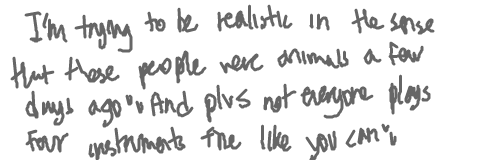 I'm trying to be realistic in the sense
that these people were animals a few
days ago". And plus not everyone plays
four instruments fine like you can".